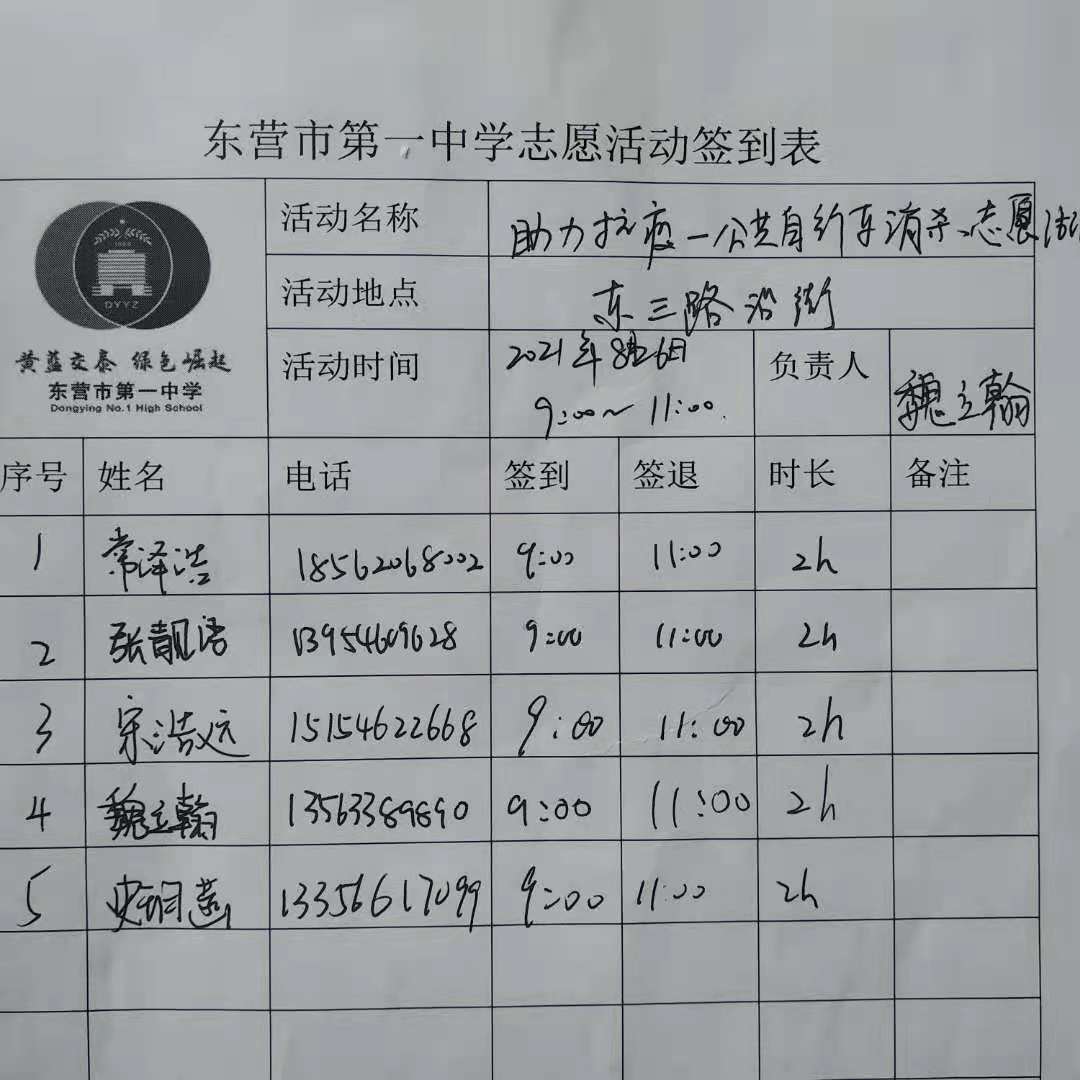 东营市第一中学志愿活动签到表
1952
DYYZ
黄蓝交泰 绿色崛起
东营市第一中学
Dongying No.1 High School
活动名称 助力抗疫—公共自行车消杀志愿活
活动地点 东三路沿街
活动时间 2021年8月26日
9:00~11:00
负责人 魏立翰
序号 姓名 电话 签到 签退 时长 备注
1 常泽浩 18562068002 9:00 11:00 2h
2 张靓洁 13954609628 9:00 11:00 2h
3 宋浩远 15154622668 9:00 11:00 2h
4 魏立翰 13563389890 9:00 11:00 2h
5 13356617099 9:00 11:00 2h